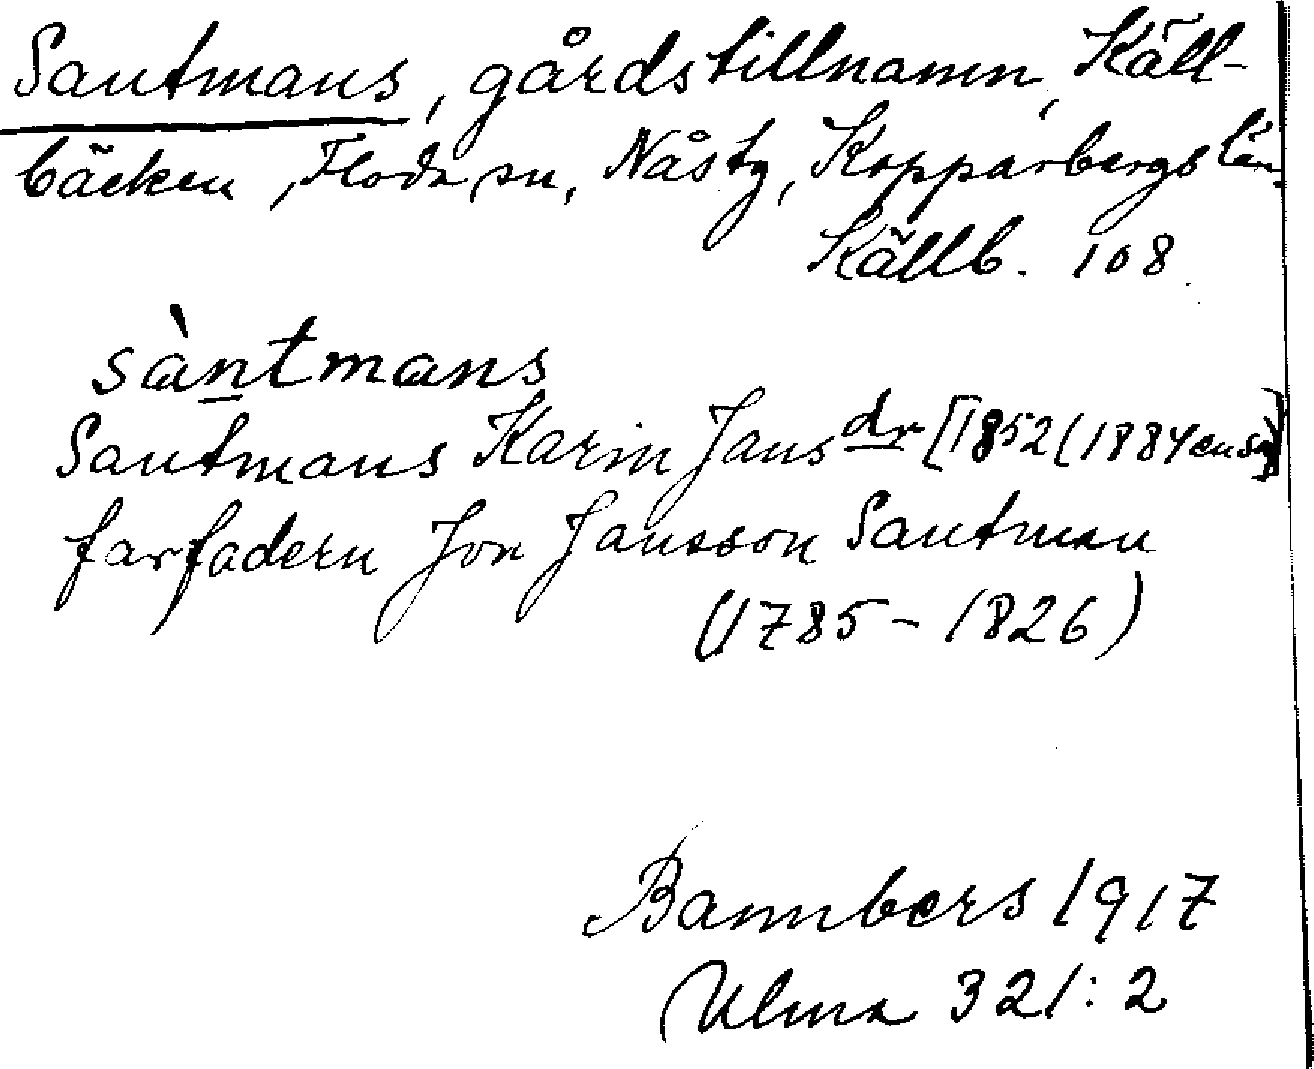 Santmans, gårdstillnamn, Käll-
bäcken, Floda sn, Nåstg, Kopparbergs län
Källb. 108.
sàntmans
Santmans Karin Jansdr [1852(1884
farfadern Jon Jansson Santman
(1785–1826)
Bannbers 1917
Ulma 321:2